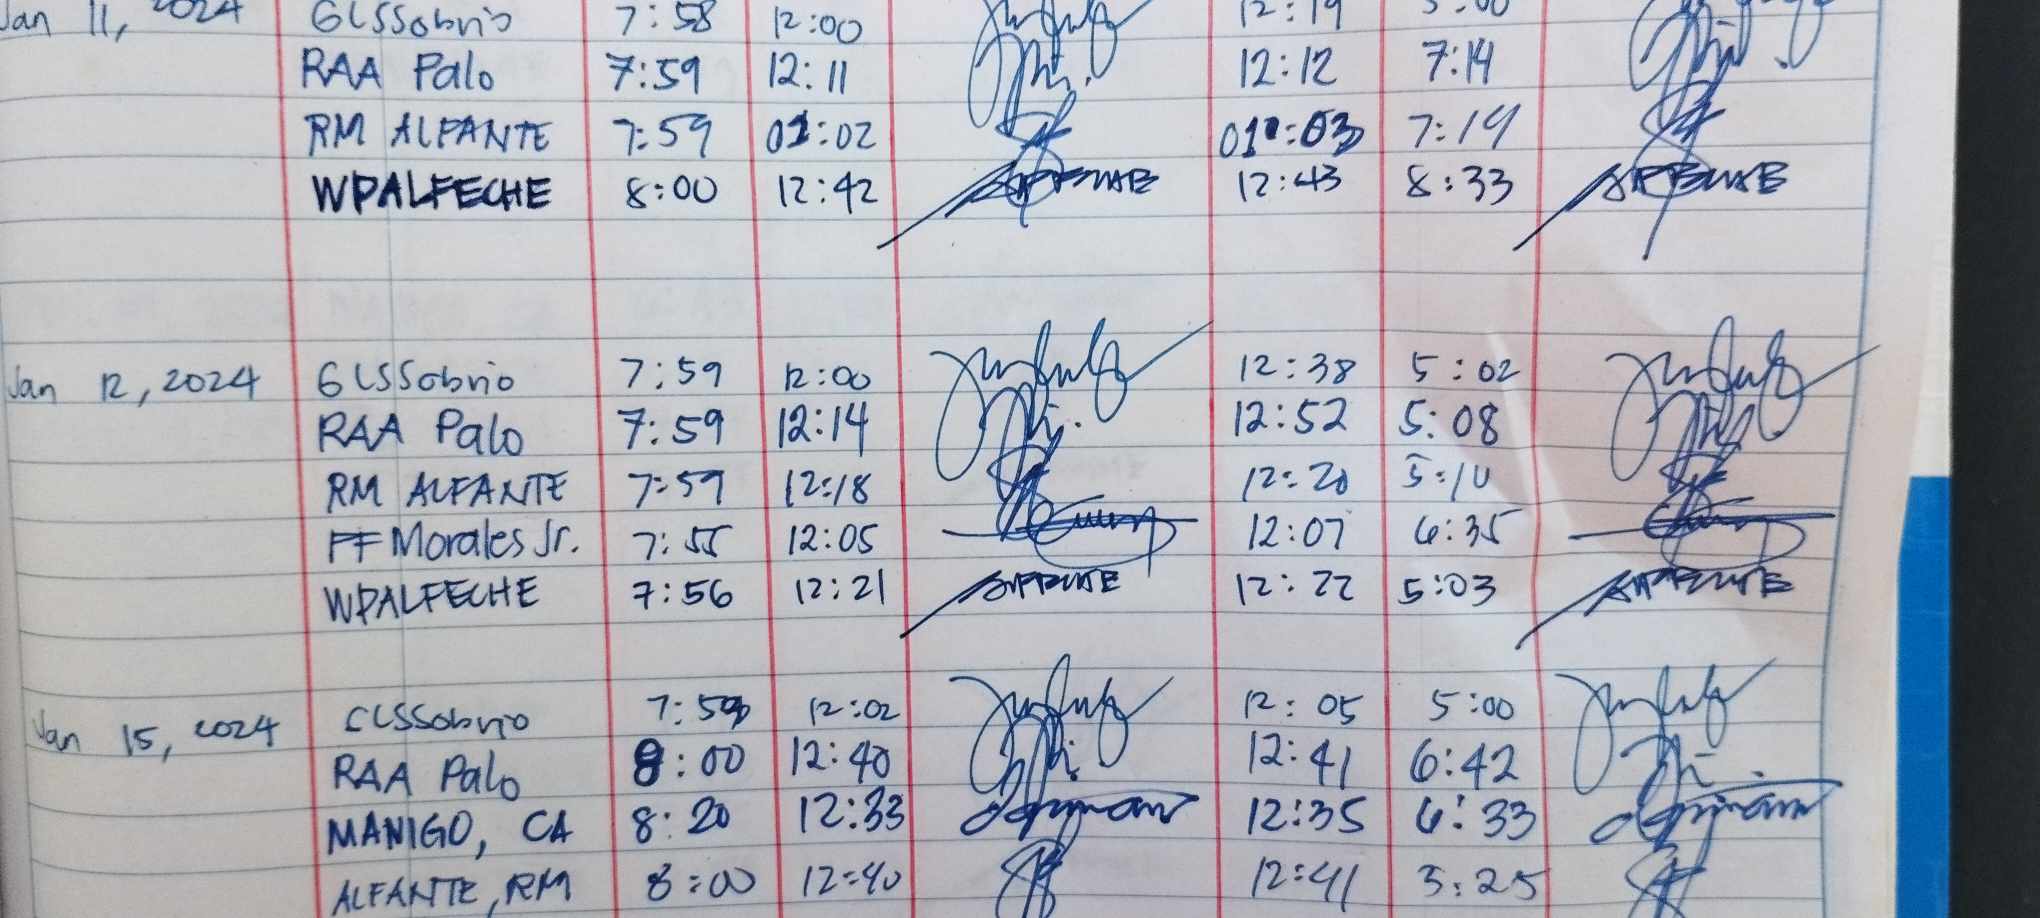 Jan 11, 2024 GLSSobrio 7:58 12:00 12:19 5:00
RAA Palo 7:59 12:11 12:12 7:14
RM ALFANTE 7:59 01:02 01:03 7:14
WPALFECHE 8:00 12:42 12:43 8:33
Jan 12, 2024 GLSSobrio 7:59 12:00 12:38 5:02
RAA Palo 7:59 12:14 12:52 5:08
RM ALFANTE 7:59 12:18 12:20 5:10
FF Morales Jr. 7:55 12:05 12:07 6:35
WPALFECHE 7:56 12:21 12:22 5:03
Jan 15, 2024 GLSSobrio 12:02 12:05 5:00
RAA Palo 8:00 12:40 12:41 6:42
MANIGO, CA 8:20 12:33 12:35 6:33
ALFANTE, RM 8:00 12:40 12:41 5:25